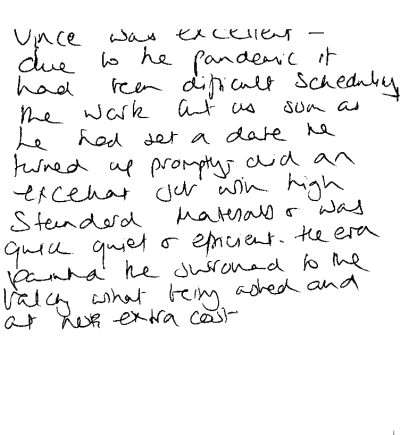 Vince was excellent -
due to he pandemic it
had been difficult scheduling
the work but as soon as
he had set a date he
turned up promptly, did an
excellent job with high
standard materials & was
quick quiet & efficient. He even
painted he surround to the
 what being asked and
at extra cost